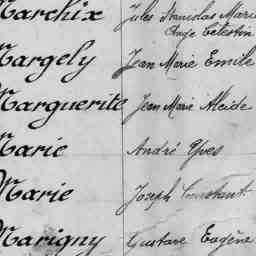 Marchix Jules Stanislas Marie
Ange Célestin
Margely Jean Marie Emile
Marguerite Jean Marie Alcide
Marie André Yves
Marie Joseph Constant
Marigny Gustave Eugène